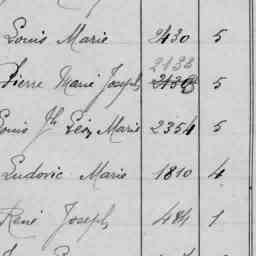 Louis Marie 2430 5
2133
Pierre Marie Joseph 5
Louis Jh Léon Marie 2354 5
Ludovic Marie 1810 4
René Joseph 484 1